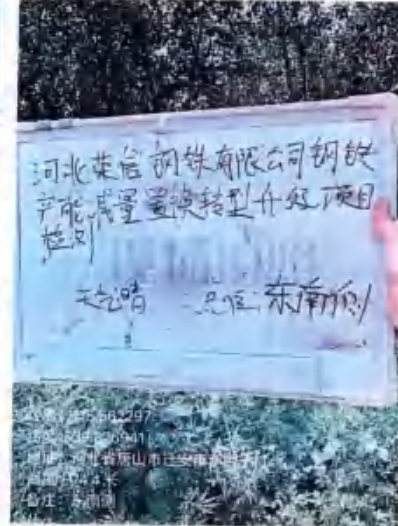 河北荣信钢铁有限公司钢铁
产能减量置换转型升级项目
检测
天气:晴 点位:东南侧
河北省唐山市迁安市
备注:东南侧